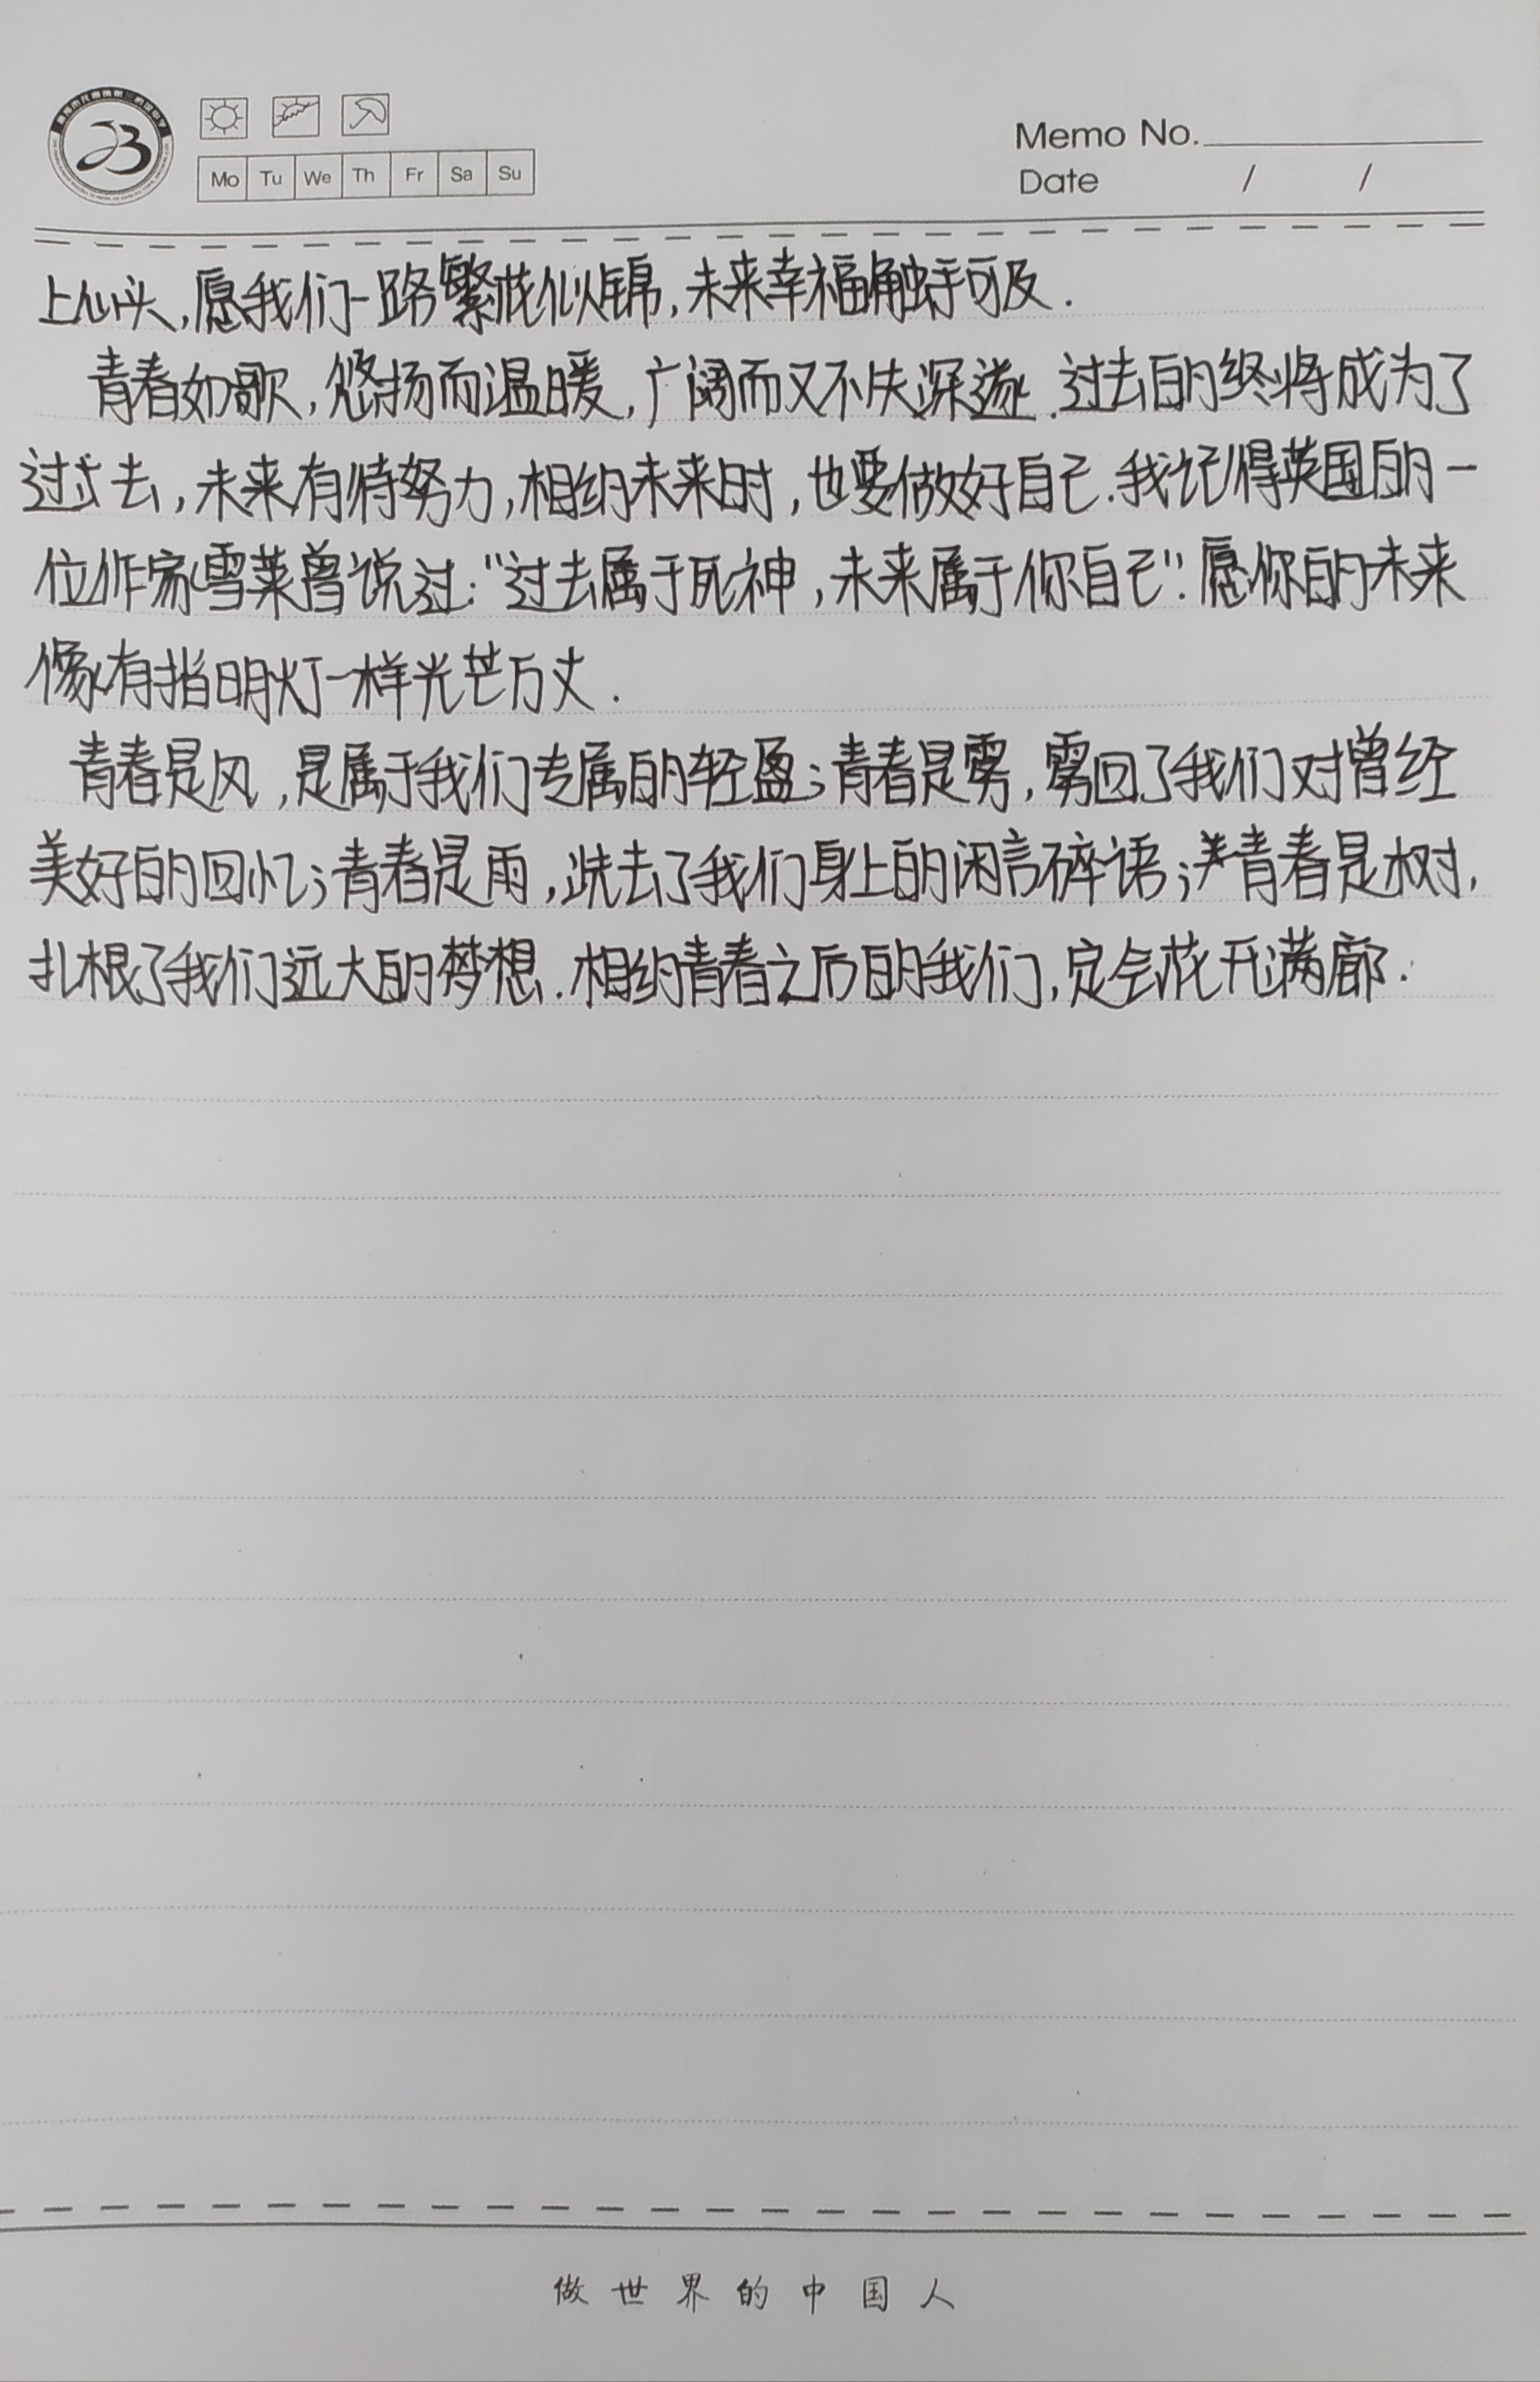 Memo No.
Mo Tu We Th Fr Sa Su
Date / /
上心头,愿我们一路繁花似锦,未来幸福触手可及.
青春如歌,悠扬而温暖,广阔而又不失深邃.过去的终将成为了
过去,未来有待努力,相约未来时,也要做好自己.我记得英国的一
位作家雪莱曾说过:"过去属于死神,未来属于你自己".愿你的未来
像有指明灯一样光芒万丈.
青春是风,是属于我们专属的轻盈;青春是雾,雾回了我们对曾经
美好的回忆;青春是雨,洗去了我们身上的闲言碎语;青春是树,
扎根了我们远大的梦想.相约青春之后的我们,定会花开满廊.
做世界的中国人